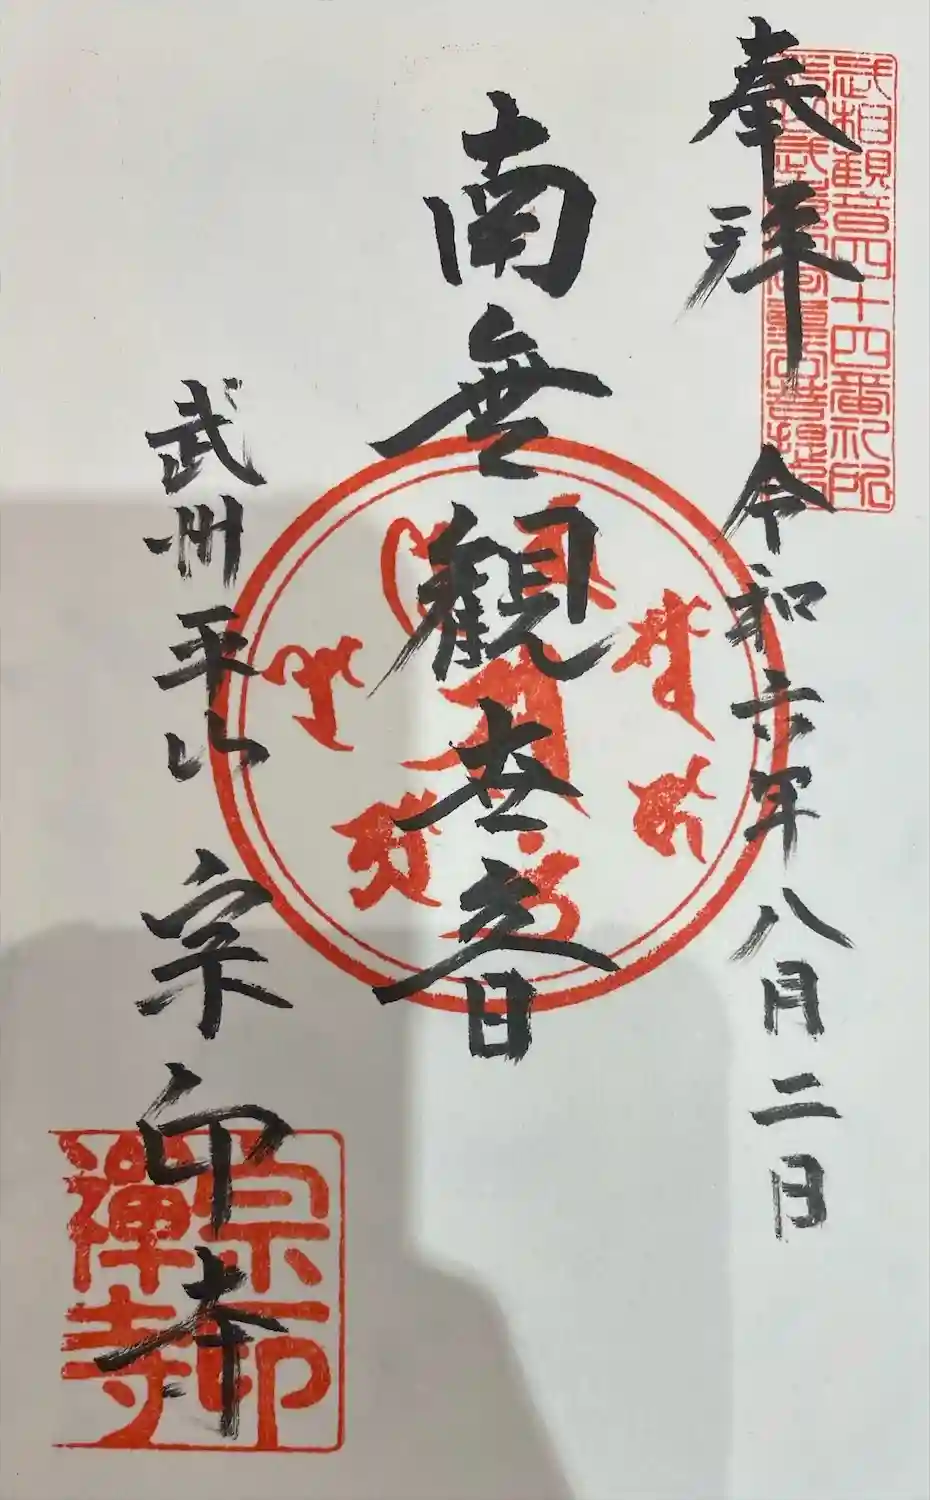 奉拝
令和六年八月二日
武相観音四十四番札所
南無観世音
武州平山
宗印寺
宗印
禅寺